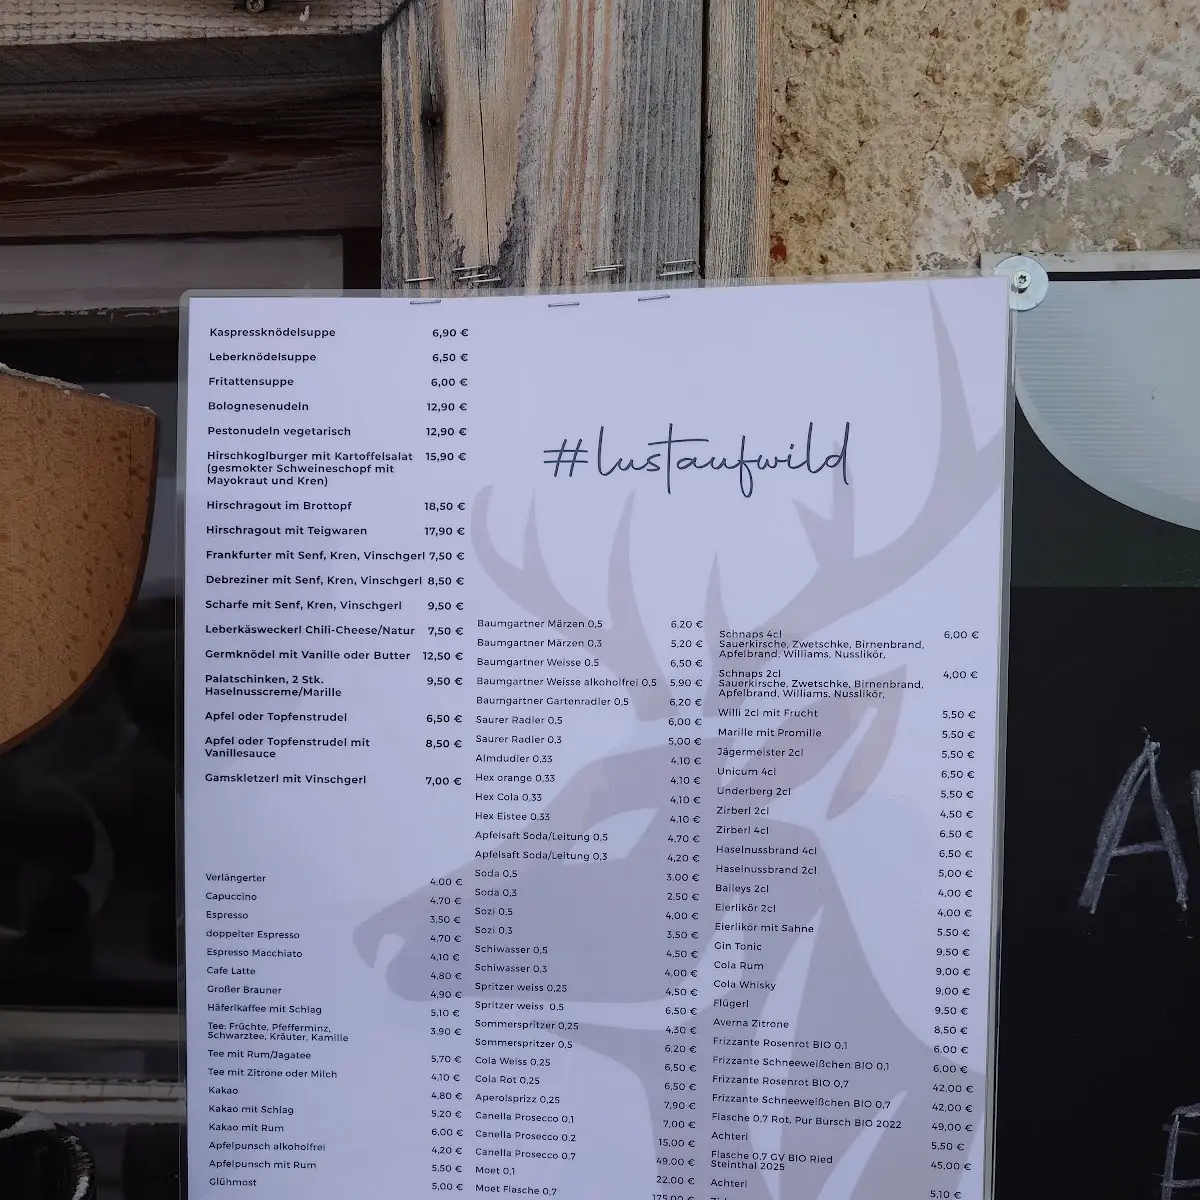 Kaspressknödelsuppe 6,90 €
Leberknödelsuppe 6,50 €
Fritattensuppe 6,00 €
Bolognesenudeln 12,90 €
Pestonudeln vegetarisch 12,90 €
Hirschkoglburger mit Kartoffelsalat 15,90 €
(gesmokter Schweineschopf mit
Mayokraut und Kren)
Hirschragout im Brottopf 18,50 €
Hirschragout mit Teigwaren 17,90 €
Frankfurter mit Senf, Kren, Vinschgerl 7,50 €
Debreziner mit Senf, Kren, Vinschgerl 8,50 €
Scharfe mit Senf, Kren, Vinschgerl 9,50 €
Leberkäsweckerl Chili-Cheese/Natur 7,50 €
Germknödel mit Vanille oder Butter 12,50 €
Palatschinken, 2 Stk. 9,50 €
Haselnusscreme/Marille
Apfel oder Topfenstrudel 6,50 €
Apfel oder Topfenstrudel mit 8,50 €
Vanillesauce
Gamskletzerl mit Vinschgerl 7,00 €
Verlängerter 4,00 €
Capuccino 4,70 €
Espresso 3,50 €
doppelter Espresso 4,70 €
Espresso Macchiato 4,10 €
Cafe Latte 4,80 €
Großer Brauner 4,90 €
Häferlkaffee mit Schlag 5,10 €
Tee: Früchte, Pfefferminz, 3,90 €
Schwarztee, Kräuter, Kamille
Tee mit Rum/Jagatee 5,70 €
Tee mit Zitrone oder Milch 4,10 €
Kakao 4,80 €
Kakao mit Schlag 5,20 €
Kakao mit Rum 6,00 €
Apfelpunsch alkoholfrei 4,20 €
Apfelpunsch mit Rum 5,50 €
Glühmost 5,00 €
#lustaufwild
Baumgartner Märzen 0,5 6,20 €
Baumgartner Märzen 0,3 5,20 €
Baumgartner Weisse 0,5 6,50 €
Baumgartner Weisse alkoholfrei 0,5 5,90 €
Baumgartner Gartenradler 0,5 6,20 €
Saurer Radler 0,5 6,00 €
Saurer Radler 0,3 5,00 €
Almdudler 0,33 4,10 €
Hex orange 0,33 4,10 €
Hex Cola 0,33 4,10 €
Hex Eistee 0,33 4,10 €
Apfelsaft Soda/Leitung 0,5 4,70 €
Apfelsaft Soda/Leitung 0,3 4,20 €
Soda 0,5 3,00 €
Soda 0,3 2,50 €
Sozi 0,5 4,00 €
Sozi 0,3 3,50 €
Schiwasser 0,5 4,50 €
Schiwasser 0,3 4,00 €
Spritzer weiss 0,25 4,50 €
Spritzer weiss 0,5 6,50 €
Sommerspritzer 0,25 4,30 €
Sommerspritzer 0,5 6,20 €
Cola Weiss 0,25 6,50 €
Cola Rot 0,25 6,50 €
Aperolsprizz 0,25 7,90 €
Canella Prosecco 0,1 7,00 €
Canella Prosecco 0,2 15,00 €
Canella Prosecco 0,7 49,00 €
Moet 0,1 22,00 €
Moet Flasche 0,7 175,00 €
Schnaps 4cl 6,00 €
Sauerkirsche, Zwetschke, Birnenbrand,
Apfelbrand, Williams, Nusslikör,
Schnaps 2cl 4,00 €
Sauerkirsche, Zwetschke, Birnenbrand,
Apfelbrand, Williams, Nusslikör,
Willi 2cl mit Frucht 5,50 €
Marille mit Promille 5,50 €
Jägermeister 2cl 5,50 €
Unicum 4cl 6,50 €
Underberg 2cl 5,50 €
Zirberl 2cl 4,50 €
Zirberl 4cl 6,50 €
Haselnussbrand 4cl 6,50 €
Haselnussbrand 2cl 5,00 €
Baileys 2cl 4,00 €
Eierlikör 2cl 4,00 €
Eierlikör mit Sahne 5,50 €
Gin Tonic 9,50 €
Cola Rum 9,00 €
Cola Whisky 9,00 €
Flügerl 9,50 €
Averna Zitrone 8,50 €
Frizzante Rosenrot BIO 0,1 6,00 €
Frizzante Schneeweißchen BIO 0,1 6,00 €
Frizzante Rosenrot BIO 0,7 42,00 €
Frizzante Schneeweißchen BIO 0,7 42,00 €
Flasche 0,7 Rot, Pur Bursch BIO 2022 49,00 €
Achterl 5,50 €
Flasche 0,7 GV BIO Ried 45,00 €
Steinthal 2025
Achterl 5,10 €
A